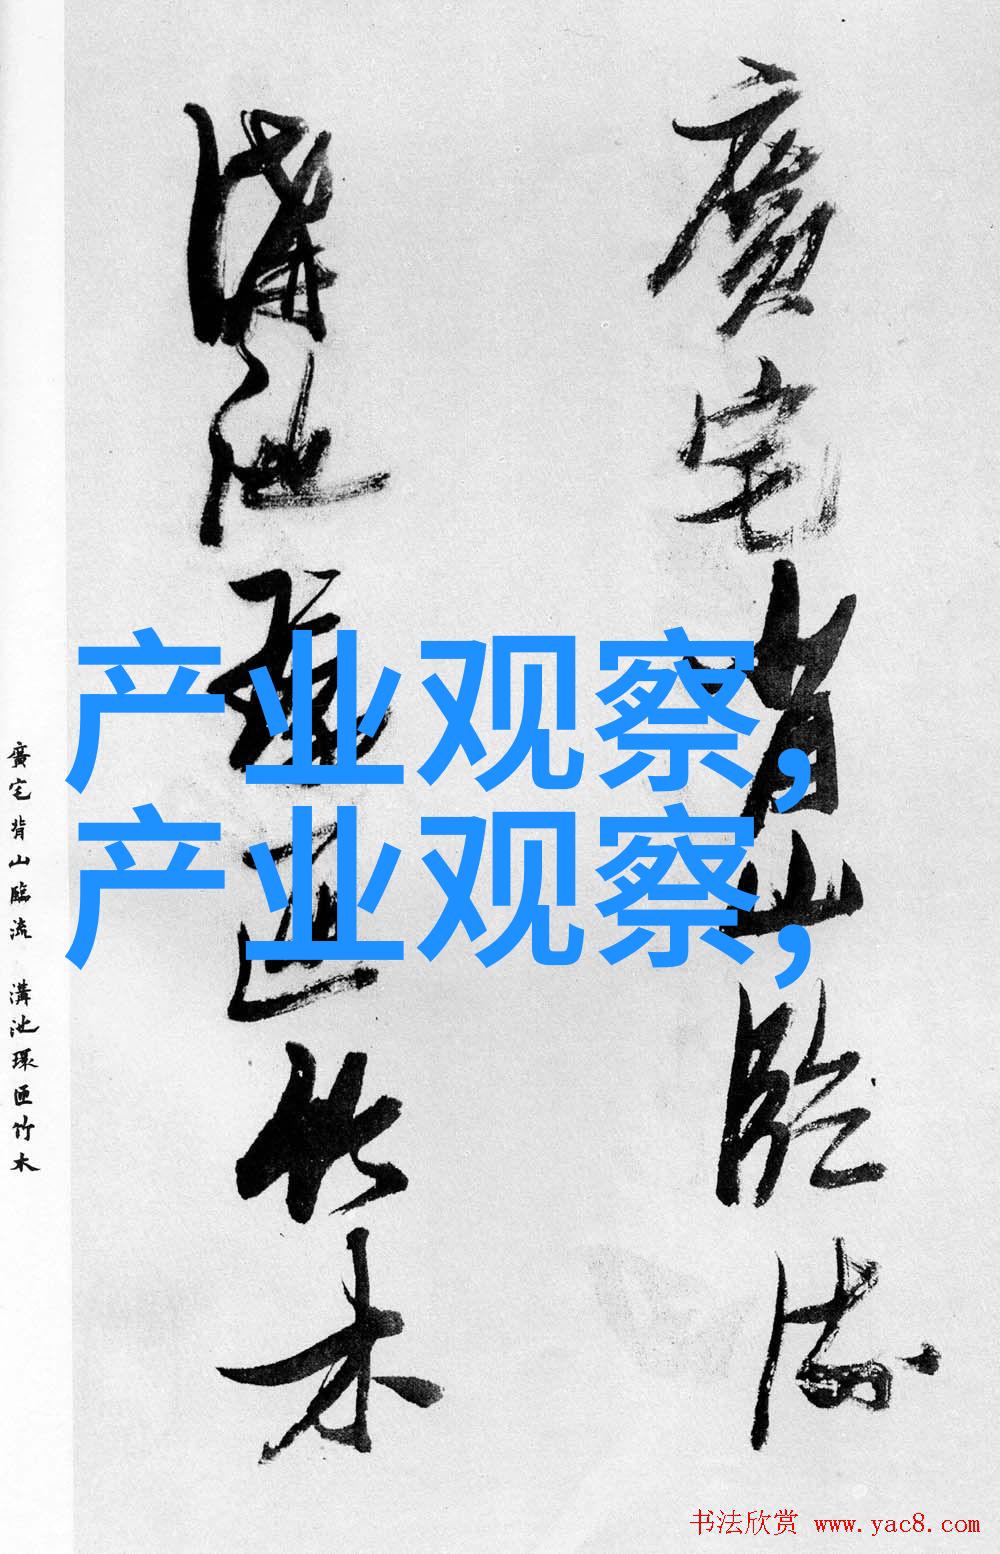 廣宅背山臨流
溝池環匝竹木
产业观察,
产业观察,
廣宅背山臨流 溝池環匝竹木
书法欣赏 www.yac8.com